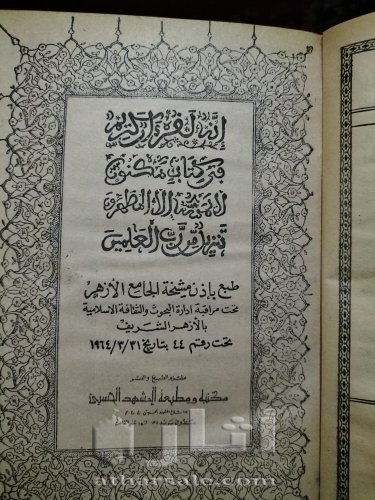 إنه لقرآن كريم
في كتاب مكنون
لا يمسه إلا المطهرون
تنزيل من رب العلمين
طبع بإذن مشيخة الجامع الأزهر
تحت مراقبة ادارة البحوث والثقافة الاسلامية
بالأزهر الشريف
تحت رقم ٤٤ بتاريخ ١٩٦٤/٣/٣١
ملتزم الطبع والنشر
مكتبة ومطبعة المشهد الحسينى
اثارية
atharsale.com